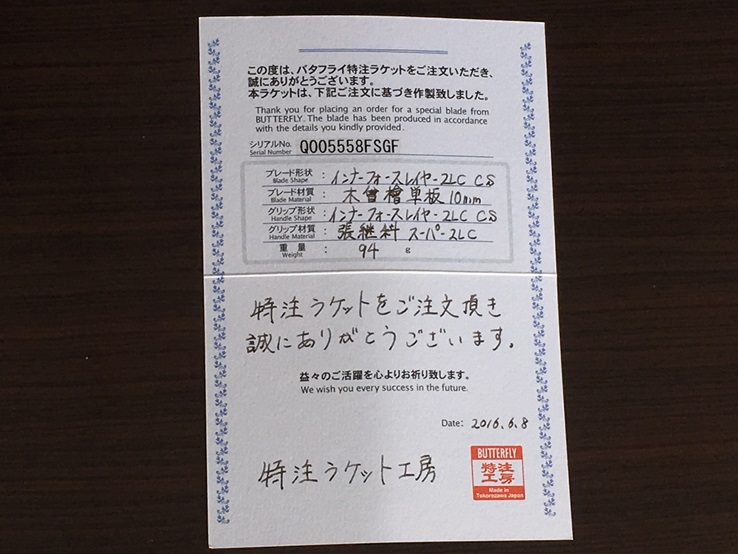 この度は、バタフライ特注ラケットをご注文いただき、
誠にありがとうございます。
本ラケットは、下記ご注文に基づき作製致しました。
Thank you for placing an order for a special blade from
BUTTERFLY. The blade has been produced in accordance
with the details you kindly provided.
シリアルNo. Q005558FSGF
Serial Number
ブレード形状 : インナーフォースレイヤーZLC CS
Blade Shape
ブレード材質 : 木曽檜単板10mm
Blade Material
グリップ形状 : インナーフォースレイヤーZLC CS
Handle Shape
グリップ材質 : 張継料 スーパーZLC
Handle Material
重量 : 94 g
Weight
特注ラケットをご注文頂き
誠にありがとうございます。
益々のご活躍を心よりお祈り致します。
We wish you every success in the future.
Date: 2016.6.8
特注ラケット工房
BUTTERFLY
特注
工房
Made in
Tokorozawa Japan